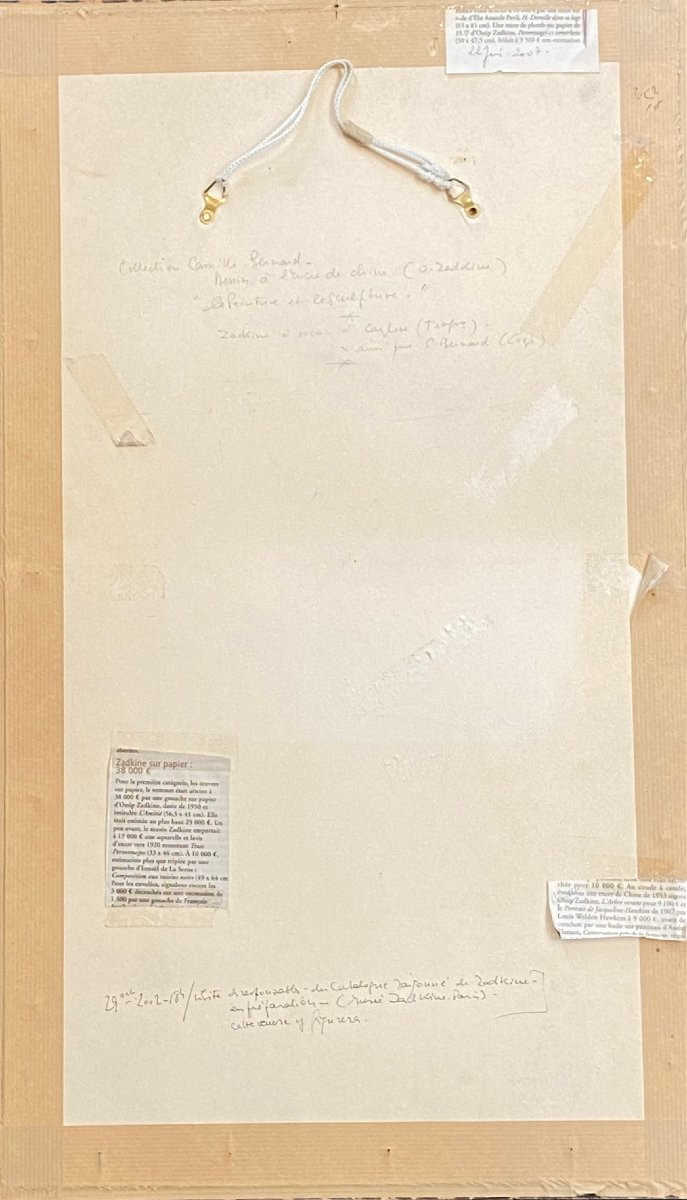 ruile d'Élie Anatole Pavil, H. Dervelle dans sa loge
(65 x 81 cm). Une mine de plomb sur papier de
1937 d'Ossip Zadkine, Personnages et
(50 x 47,5 cm), frôlait 9 500 € son estimation
22 Juin 2007.
Collection Camille Bernard -
Dessin à l'encre de chine (O. Zadkine)
"la Peinture et la sculpture."
Zadkine à
ami par C. Bernard
absentes.
Zadkine sur papier :
38 000 €
Pour la première catégorie, les œuvres
sur papier, le sommet était atteint à
38 000 € par une gouache sur papier
d'Ossip Zadkine, datée de 1950 et
intitulée L'Amitié (56,5 x 41 cm). Elle
était estimée au plus haut 25 000 €. Un
peu avant, le musée Zadkine emportait
à 19 000 € une aquarelle et lavis
d'encre vers 1920 montrant Trois
Personnages (33 x 46 cm). À 10 000 €,
estimation plus que triplée par une
gouache d'Ismaël de La Serna :
Composition aux raisins noirs (49 x 64 cm
Pour les envolées, signalons encore les
3 000 € décrochés sur une estimation de
1 500 par une gouache de François
chée pour 10 800 €. Au coude à coude,
une encre de Chine de 1953 signée
Ossip Zadkine, L'Arbre vivant pour 9 100 € et
le Portrait de Jacqueline Hawkins de 1907 par
Louis Welden Hawkins à 9 000 €, suivi de
conduite par une huile sur panneau d'André
29 oct - 2002 - 18h / visite du Catalogue raisonné de Zadkine -
en préparation - (Musée Zadkine. Paris) -
cette œuvre y figurera.